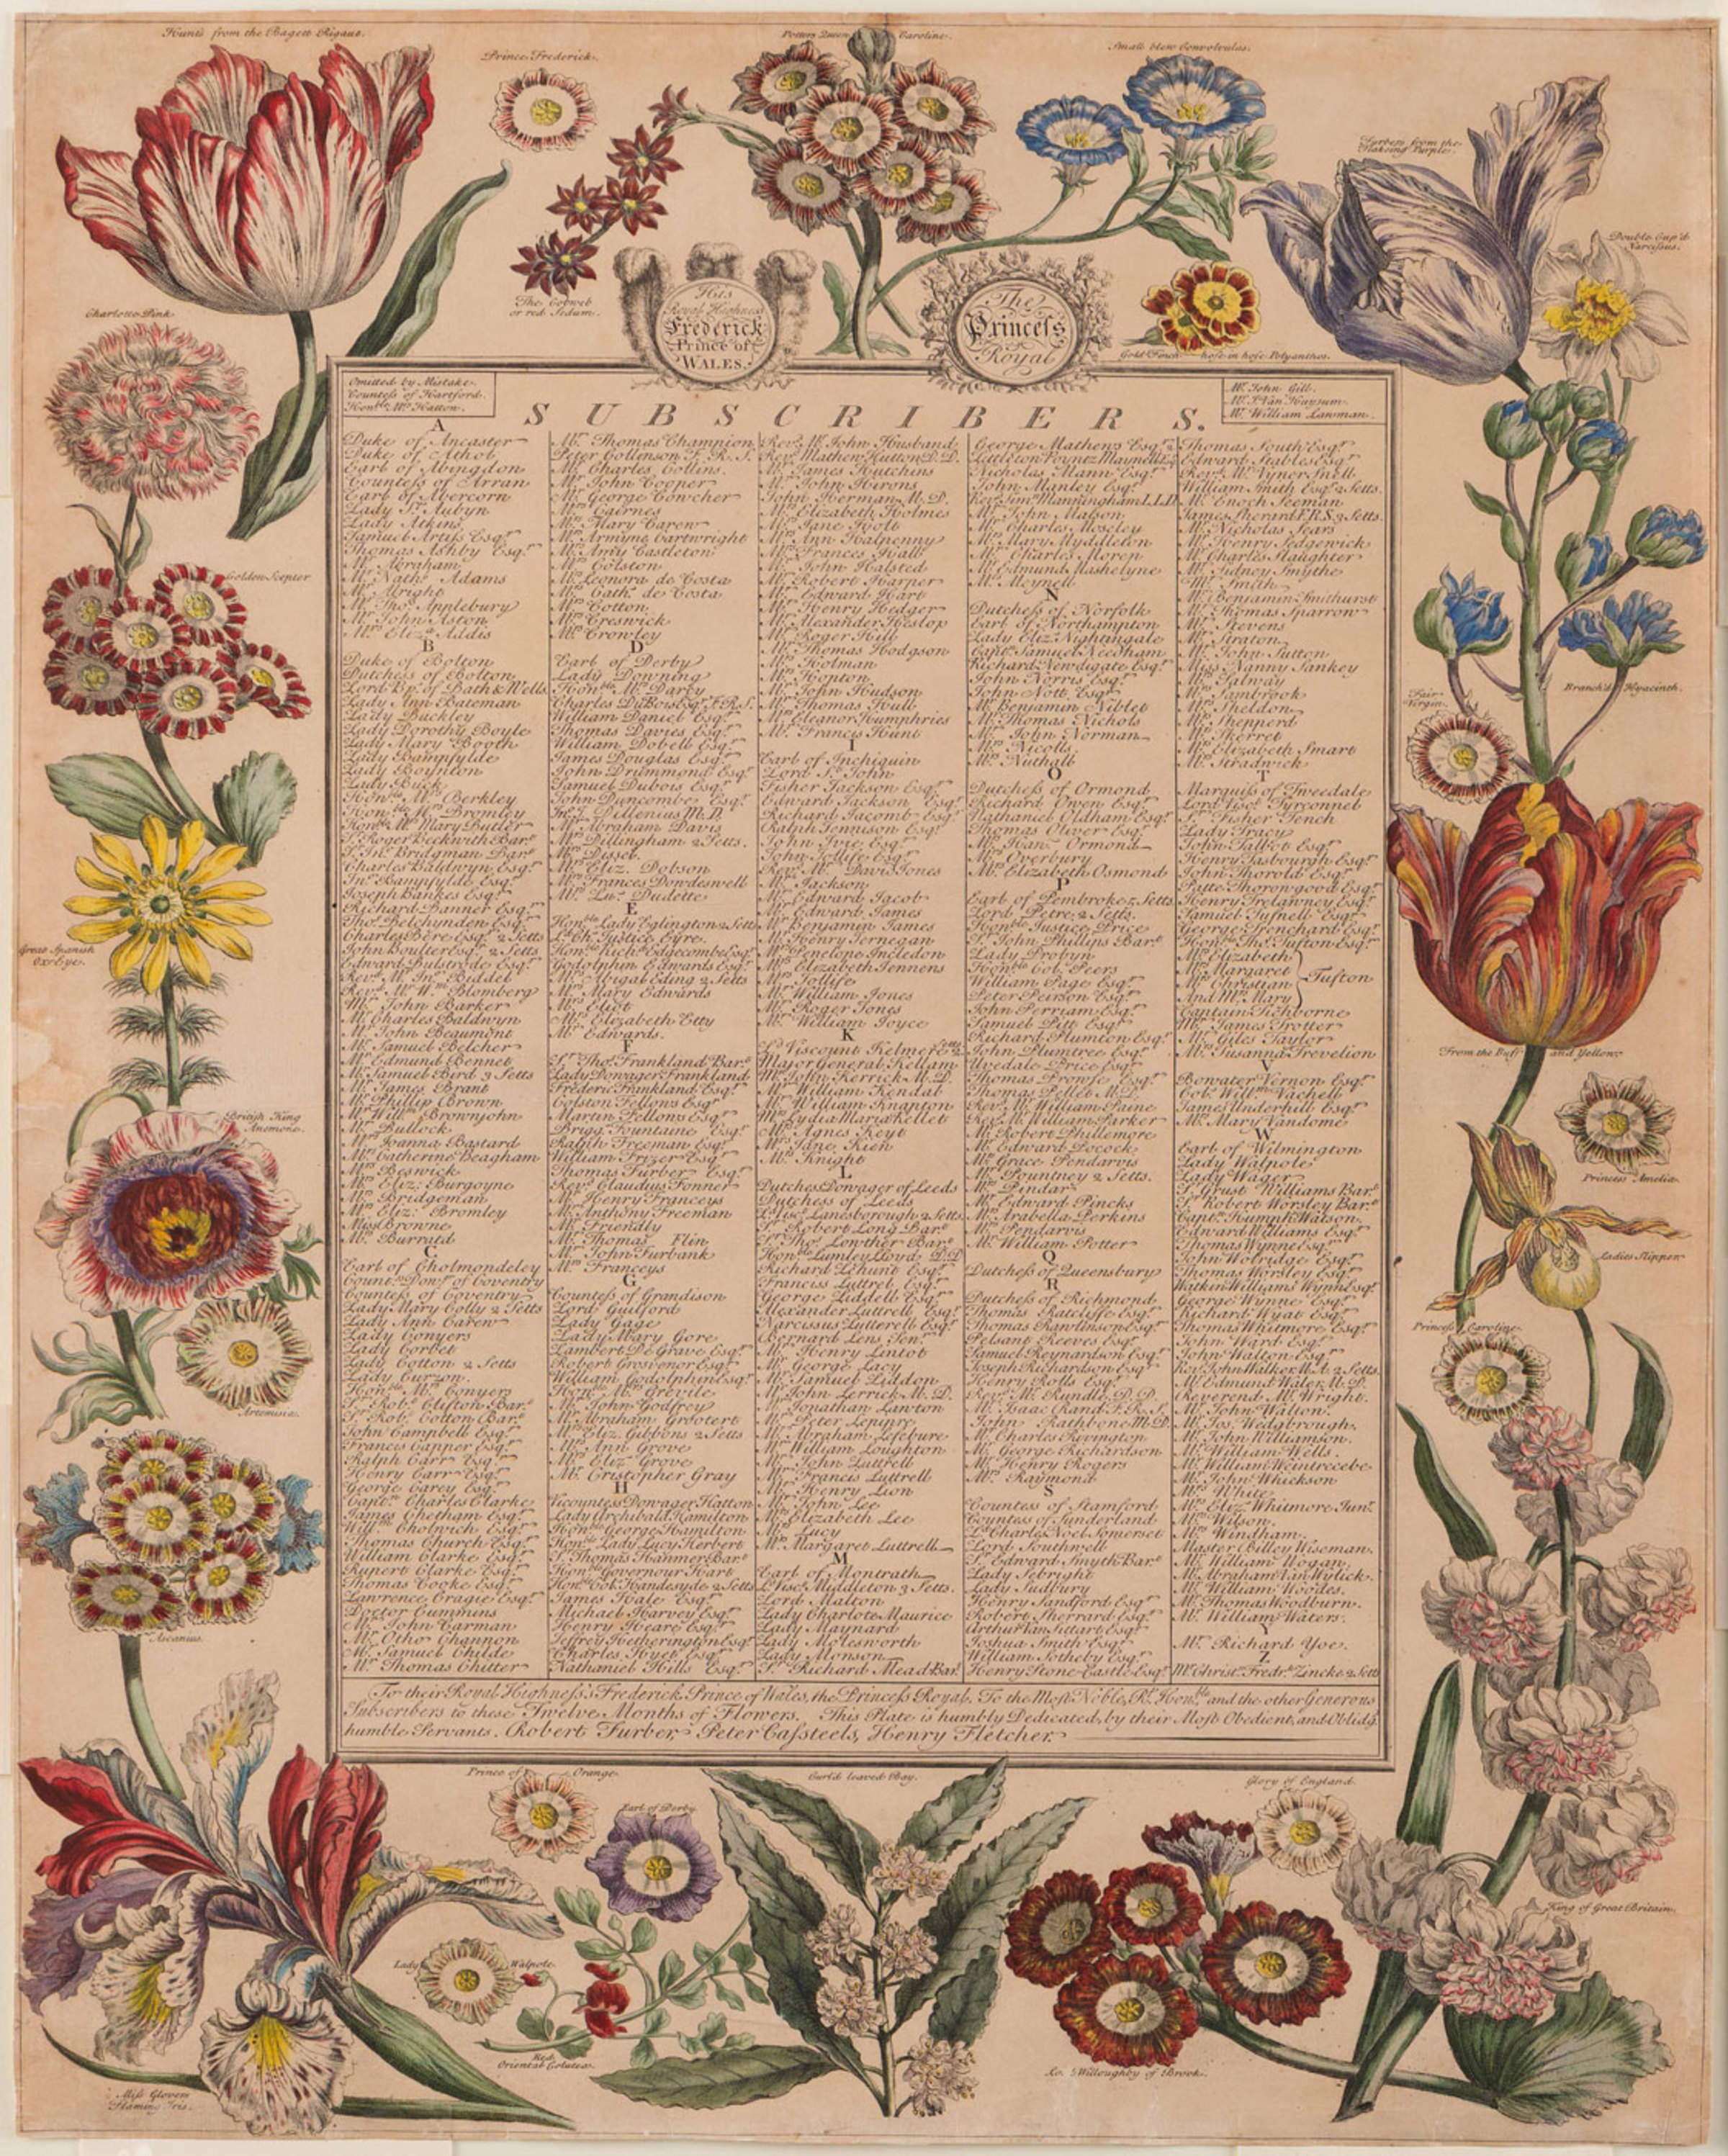 Hunts from the Bagett Rigaut.
Prince Frederick.
Potters Queen Caroline.
Small blew Convolvulus.
Furbers from the
Flaksing Purple.
Double Cup'd
Narcissus.
The Cobweb
or red Sedum.
Charlotte Pink.
His
Royal Highness
Frederick
Prince of
WALES.
The
Princess
Royal
Gold Finch hose in hose Polyanthos.
Omitted by Mistake.
Countess of Hartford.
Honble. Mr. Hatton.
SUBSCRIBERS.
Mr. John Gill.
Mr. J. Van Huysum.
Mr. William Lawman.
A
Duke of Ancaster
Duke of Athol
Earl of Abingdon
Countess of Arran
Earl of Abercorn
Lady St. Aubyn
Lady Atkins
Samuel Artis Esqr.
Thomas Ashby Esqr.
Mr. Abraham
Mr. Nathl. Adams
Mr. Alright
Mr. Tho. Applebury
Mr. John Aston
Mrs. Eliza. Addis
B
Duke of Bolton
Dutchess of Bolton
Lord Bp. of Bath & Wells
Lady Ann Bateman
Lady Buckley
Lady Dorothy Boyle
Lady Mary Booth
Lady Bampfylde
Lady Boynton
Lady Buck
Honble. Mrs. Berkley
Honble. Mrs. Bromley
Honble. Mrs. Mary Butler
Sr. Roger Beckwith Bart.
Sr. Jno. Bridgman Bart.
Charles Baldwyn Esqr.
Jno. Bampfylde Esqr.
Joseph Bankes Esqr.
Richard Banner Esqr.
Tho. Belchynden Esqr.
Charles Bere Esqr. 2 Setts
John Boulter Esqr. 2 Setts
Edward Bulstrode Esqr.
Revd. Mr. Jno. Biddel
Revd. Mr. Wm. Blomberg
Mr. John Barker
Mr. Charles Baldwyn
Mr. John Beaumont
Mr. Samuel Belcher
Mr. Edmund Bennet
Mr. Samuel Bird 3 Setts
Mr. James Brand
Mr. Phillip Brown
Mr. Willm. Brownjohn
Mr. Bullock
Mrs. Joanna Bastard
Mrs. Catherine Beagham
Mrs. Beswick
Mrs. Eliz: Burgoyne
Mrs. Bridgeman
Mrs. Eliz: Bromley
Miss Browne
Mr. Burratd
C
Earl of Cholmondeley
Count. Dowr. of Coventry
Countess of Coventry
Lady Mary Colly 2 Setts
Lady Ann Carew
Lady Conyers
Lady Corbet
Lady Cotton 2 Setts
Lady Curzon.
Honble. Mr. Conyers
Sr. Robt. Clifton Bart.
Sr. Robt. Cotton Bart.
John Campbell Esqr.
Francis Capper Esqr.
Ralph Carr Esqr.
Henry Carr Esqr.
George Carey Esqr.
Captn. Charles Clarke
James Chetham Esqr.
Will. Cholwich Esqr.
Thomas Church Esqr.
William Clarke Esqr.
Rupert Clarke Esqr.
Thomas Cooke Esqr.
Lawrence Cragie Esqr.
Doctor Cummins
Mr. John Carman
Mr. Otho Channon
Mr. Samuel Childe
Mr. Thomas Chitter
Mr. Thomas Champion
Peter Collenson F. R. S.
Mr. Charles Collins.
Mr. John Cooper
Mr. George Cowcher
Mrs. Cairnes
Mrs. Mary Carew
Mrs. Armyne Cartwright
Mrs. Amy Castleton
Mrs. Colston
Mrs. Leonora de Costa
Mrs. Cath. de Costa
Mrs. Cotton
Mrs. Creswick
Mrs. Crowley
D
Earl of Derby
Lady Downing
Honble. Mr. Darby
Charles DuBois Esqr. F.R.S.
William Daniel Esqr.
Thomas Davies Esqr.
William Dobell Esqr.
James Douglas Esqr.
John Drummond Esqr.
Samuel Dubois Esqr.
John Duncombe Esqr.
Jno. Dillenius M.D.
Mr. Abraham Davis
Mr. Dillingham 2 Setts.
Mr. Dissel.
Mrs. Eliz. Dobson
Mrs. Frances Dowdeswell
Mr. La. Dudette
E
Honble. Lady Eglington 2 Setts
Ld. Ch. Justice Eyre.
Hon. Rich. Edgecombe Esqr.
Godolphin Edwards Esqr.
Mrs. Abigal Eding 2 Setts
Mrs. Mary Edwards
Mrs. Eliot
Mrs. Elizabeth Etty
Mr. Edwards.
F
Sr. Tho. Frankland Bart.
Lady Dowager Frankland
Frederic Frankland Esqr.
Colston Fellows Esqr.
Martin Fellows Esqr.
Brigg Fountaine Esqr.
Ralph Freeman Esqr.
William Frizer Esqr.
Thomas Furber Esqr.
Revd. Claudius Fonner
Mr. Henry Franceys
Mr. Anthony Freeman
Mr. Friendly
Mr. Thomas Flin
Mr. John Furbank
Mrs. Franceys
G
Countess of Grandison
Lord Guilford
Lady Gage
Lady Mary Gore
Lambert De Grave Esqr.
Robert Grosvenor Esqr.
William Godolphin Esqr.
Honble. Mr. Grevile
Mr. John Godfrey
Mr. Abraham Grootert
Mrs. Eliz. Gibbons 2 Setts
Mrs. Ann Grove
Mrs. Eliz. Grove
Mr. Cristopher Gray
H
Vicountess Dowager Hatton
Lady Archibald Hamilton
Honble. George Hamilton
Honble. Lady Lucy Herbert
Sr. Thomas Hanmer Bart.
Honble. Governour Hart
Honble. Col. Handesyde 2 Setts
James Hale Esqr.
Michael Harvey Esqr.
Henry Heare Esqr.
Jeffrey Hetherington Esqr.
Charles Hyet Esqr.
Nathaniel Hills Esqr.
Revd. Mr. John Husband
Revd. Mathew Hutton D.D.
Mr. James Hutchins
Mr. John Hirons
John Herman M. D.
Mrs. Elizabeth Holmes
Mrs. Jane Holt
Mrs. Ann Halpenny
Mrs. Frances Hall
Mr. John Halsted
Mr. Robert Harper
Mr. Edward Hart
Mr. Henry Hedger
Mr. Alexander Heslop
Mr. Roger Hill
Mr. Thomas Hodgson
Mrs. Holman
Mrs. Hopton
Mr. John Hudson
Mr. Thomas Hull
Mrs. Eleanor Humphries
Mr. Francis Hunt
I
Earl of Inchiquin
Lord St. John
Fisher Jackson Esqr.
Edward Jackson Esqr.
Richard Jacomb Esqr.
Ralph Jennison Esqr.
John Ivie Esqr.
John Jollife Esqr.
Revd. Mr. David Jones
Mr. Jackson
Mr. Edward Jacob
Mr. Edward James
Mr. Benjamin James
Mr. Henry Jernegan
Mrs. Penelope Incledon
Mrs. Elizabeth Jennens
Mr. Jollife
Mr. William Jones
Mr. Roger Jones
Mr. William Joyce
K
Ld. Viscount Kelmere 2 Setts
Major General Kellam
Mr. John Kerrick M.D.
Mr. William Kendal
Mr. William Knapton
Mrs. Lydia Maria Kellet
Mrs. Agnes Keyt
Mrs. Jane Kien
Mr. Knight
L
Dutchess Dowager of Leeds
Dutchess of Leeds
Ld. Visc. Lanesborough 2 Setts
Sr. Robert Long Bart.
Sr. Tho. Lowther Bart.
Honble. Lumley Lloyd D.D.
Richard L'hunt Esqr.
Franciss Luttrel Esqr.
George Liddell Esqr.
Alexander Luttrell Esqr.
Narcissus Lutterell Esqr.
Bernard Lens Sen.
Mr. Henry Lintot
Mr. George Lacy
Mr. Samuel Liddon
Mr. John Lerrick M. D.
Mr. Jonathan Lawton
Mr. Peter Lepipre
Mr. Abraham Lefebure
Mr. William Loughton
Mr. John Luttrell
Mr. Francis Luttrell
Mr. Henry Lion
Mr. John Lee
Mrs. Elizabeth Lee
Mrs. Lucy
Mrs. Margaret Luttrell
M
Earl of Montrath
Ld. Visc. Middleton 3 Setts.
Lord Malton
Lady Charlote Maurice
Lady Maynard
Lady Molesworth
Lady Monson
Sr. Richard Mead Bar.
George Mathews Esqr. 2
Littleton Pountz Maynell Esqr.
Nicholas Mann Esqr.
John Manley Esqr.
Revd. Sim. Manningham L.L.D.
Mr. John Matson
Mr. Charles Moseley
Mrs. Mary Myddelton
Mr. Charles Moren
Mr. Edmund Mashelyne
Mr. Meynell
N
Dutchess of Norfolk
Earl of Northampton
Lady Eliz. Nightingale
Capt. Samuel Needham
Richard Newdigate Esqr.
John Norris Esqr.
John Nott Esqr.
Mr. Benjamin Niblet
Mr. Thomas Nichols
Mr. John Norman
Mrs. Nicolls
Mr. Nuthall
O
Dutchess of Ormond
Richard Owen Esqr.
Nathaniel Oldham Esqr.
Thomas Oliver Esqr.
Mr. Han. Ormond
Mr. Overbury
Mr. Elizabeth Osmond
P
Earl of Pembroke 2 Setts
Lord Petre 2 Setts.
Honble. Justice Price
Sr. John Phillips Bart.
Lady Probyn
Honble. Col. Peers
William Page Esqr.
Peter Peirson Esqr.
John Perriam Esqr.
Samuel Pitt Esqr.
Richard Plumton Esqr.
John Plumtree Esqr.
Uvedale Price Esqr.
Thomas Prowse Esqr.
Thomas Pellet M.D.
Revd. Mr. William Paine
Revd. Mr. William Parker
Mr. Robert Phillemore
Mr. Edward Pocock
Mrs. Grace Pendarvis
Mr. Pountney 2 Setts.
Mr. Pindar
Mr. Edward Pincks
Mrs. Arabella Perkins
Mrs. Pendarvis
Mr. William Potter
Q
Dutchess of Queensbury
R
Dutchess of Richmond
Thomas Ratcliffe Esqr.
Thomas Rawlinson Esqr.
Pelsant Reeves Esqr.
Samuel Reynardson Esqr.
Joseph Richardson Esqr.
Henry Rolls Esqr.
Revd. Mr. Rundle D.D.
Mr. Isaac Rand F.R.S.
John Rathbone M.D.
Mr. Charles Rivington
Mr. George Richardson
Mr. Henry Rogers
Mrs. Raymond
S
Countess of Stamford
Countess of Sunderland
Ld. Charles Noel Somerset
Lord Southwell
Sr. Edward Smyth Bart.
Lady Sebright
Lady Sudbury
Henry Sandford Esqr.
Robert Sherrard Esqr.
Arthur Van Sittart Esqr.
Joshua Smith Esqr.
William Sotheby Esqr.
Henry Stone Castle Esqr.
Thomas South Esqr.
Edward Stables Esqr.
Revd. Mr. Vyner Snell
William Smith Esqr. 2 Setts.
Mr. Enoch Seeman
James Sherard F.R.S. 3 Setts.
Mr. Nicholas Sears
Mr. Henry Sedgewick
Mr. Charles Slaughter
Mr. Sidney Smythe
Mr. Smith
Mr. Benjamin Smithurst
Mr. Thomas Sparrow
Mr. Stevens
Mr. Straton
Mr. John Sutton
Miss Nanny Sankey
Mrs. Salway
Mrs. Sambrook
Mrs. Sheldon
Mrs. Shepperd
Mrs. Sherret
Mrs. Elizabeth Smart
Mr. Stradwick
T
Marquiss of Tweedale
Lord Visct. Tyrconnel
Sr. Fisher Tench
Lady Tracy
John Talbot Esqr.
Henry Tasbourgh Esqr.
John Thorold Esqr.
Patte Thorowgood Esqr.
Henry Trelawney Esqr.
Samuel Tufnell Esqr.
George Trenchard Esqr.
Honble. Tho. Tufton Esqr.
Mrs. Elizabeth
Mrs. Margaret
Mrs. Christian
And Mrs. Mary
Tufton
Captain Tichborne
Mr. James Trotter
Mr. Giles Taylor
Mrs. Susanna Trevelion
V
Bowater Vernon Esqr.
Col. Willm. Vachell
James Underhill Esqr.
Mr. Mary Vandome
W
Earl of Wilmington
Lady Walpole
Lady Wager
Sr. Grust Williams Bart.
Sr. Robert Worsley Bart.
Capt. Humph. Watson.
Edward Williams Esqr.
Thomas Wynne Esqr.
John Wolridge Esqr.
Thomas Worsley Esqr.
Watkin Williams Wynn Esqr.
George Wynne Esqr.
Richard Wyat Esqr.
Thomas Whitmore Esqr.
John Ward Esqr.
John Watson Esqr.
Revd. John Walker M.A. 2 Setts.
Mr. Edmund Waler M.D.
Reverend Mr. Wright.
Mr. John Walton.
Mr. Jos. Wedgbrough.
Mr. John Williamson.
Mr. William Wells.
Mr. William Weintrecebe
Mr. John Whickson
Mrs. White
Mrs. Eliz. Whitmore Junr.
Mrs. Wilson.
Mrs. Windham.
Master Billey Wiseman.
Mr. William Wogan.
Mr. Abraham Van Wylick.
Mr. William Woodes.
Mr. Thomas Woodburn.
Mr. William Waters.
Y
Mr. Richard Yoe.
Z
Mr. Christ. Fredr. Zincke 2 Setts
To their Royal Highness's Frederick Prince of Wales, the Princess Royal, To the Most Noble, Rt. Honble. and the other Generous
Subscribers to these Twelve Months of Flowers. This Plate is humbly Dedicated, by their Most Obedient, and Oblidg'd
humble Servants. Robert Furber, Peter Cassteels, Henry Fletcher.
Golden Scepter
Great Spanish
Ox Eye.
British King
Anemone.
Artemina.
Ascanius.
Miss Glovers
Flaming Iris.
Branch'd Hyacinth.
Fair
Virgin.
From the Buff and Yellow.
Princess Amelia.
Ladies Slipper.
Princess Caroline.
King of Great Britain.
Prince of Orange.
Earl of Derby.
Curl'd leaved Bay.
Glory of England.
Lady Walpole.
Red
Oriental Colutea.
Lo. Willoughby of Brook.